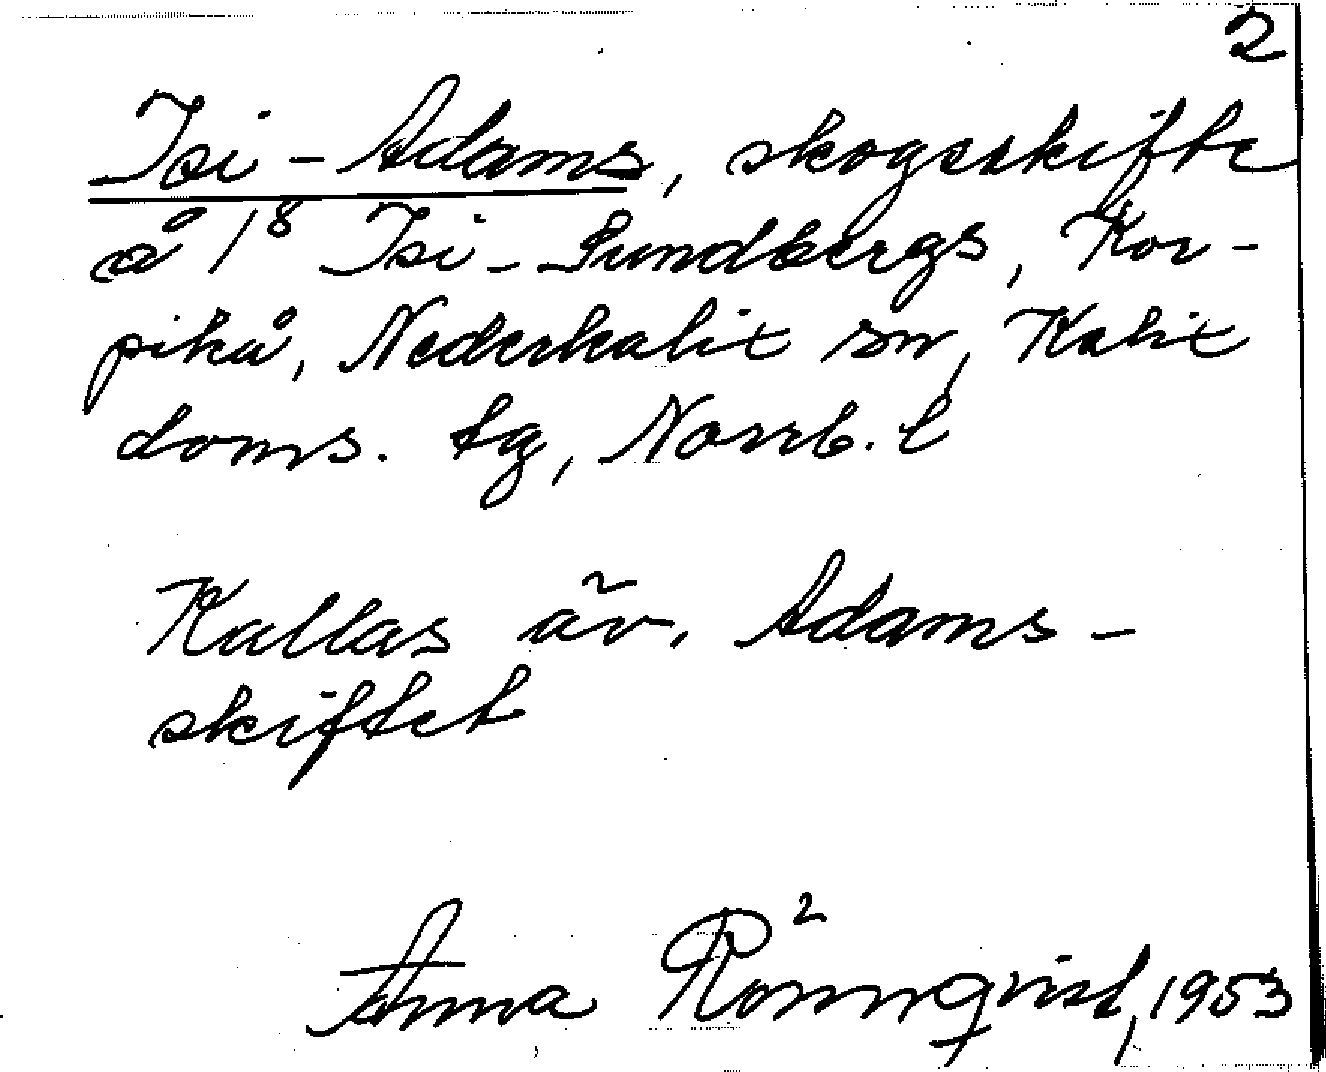 2
Isi-Adams, skogsskifte
å 1⁸ Isi-Sundbergs, Kor-
pikå, Nederkalix sn, Kalix
doms. tg, Norrb. l
Kallas äv. Adams-
skiftet
Anna Rönnqvist, 1953